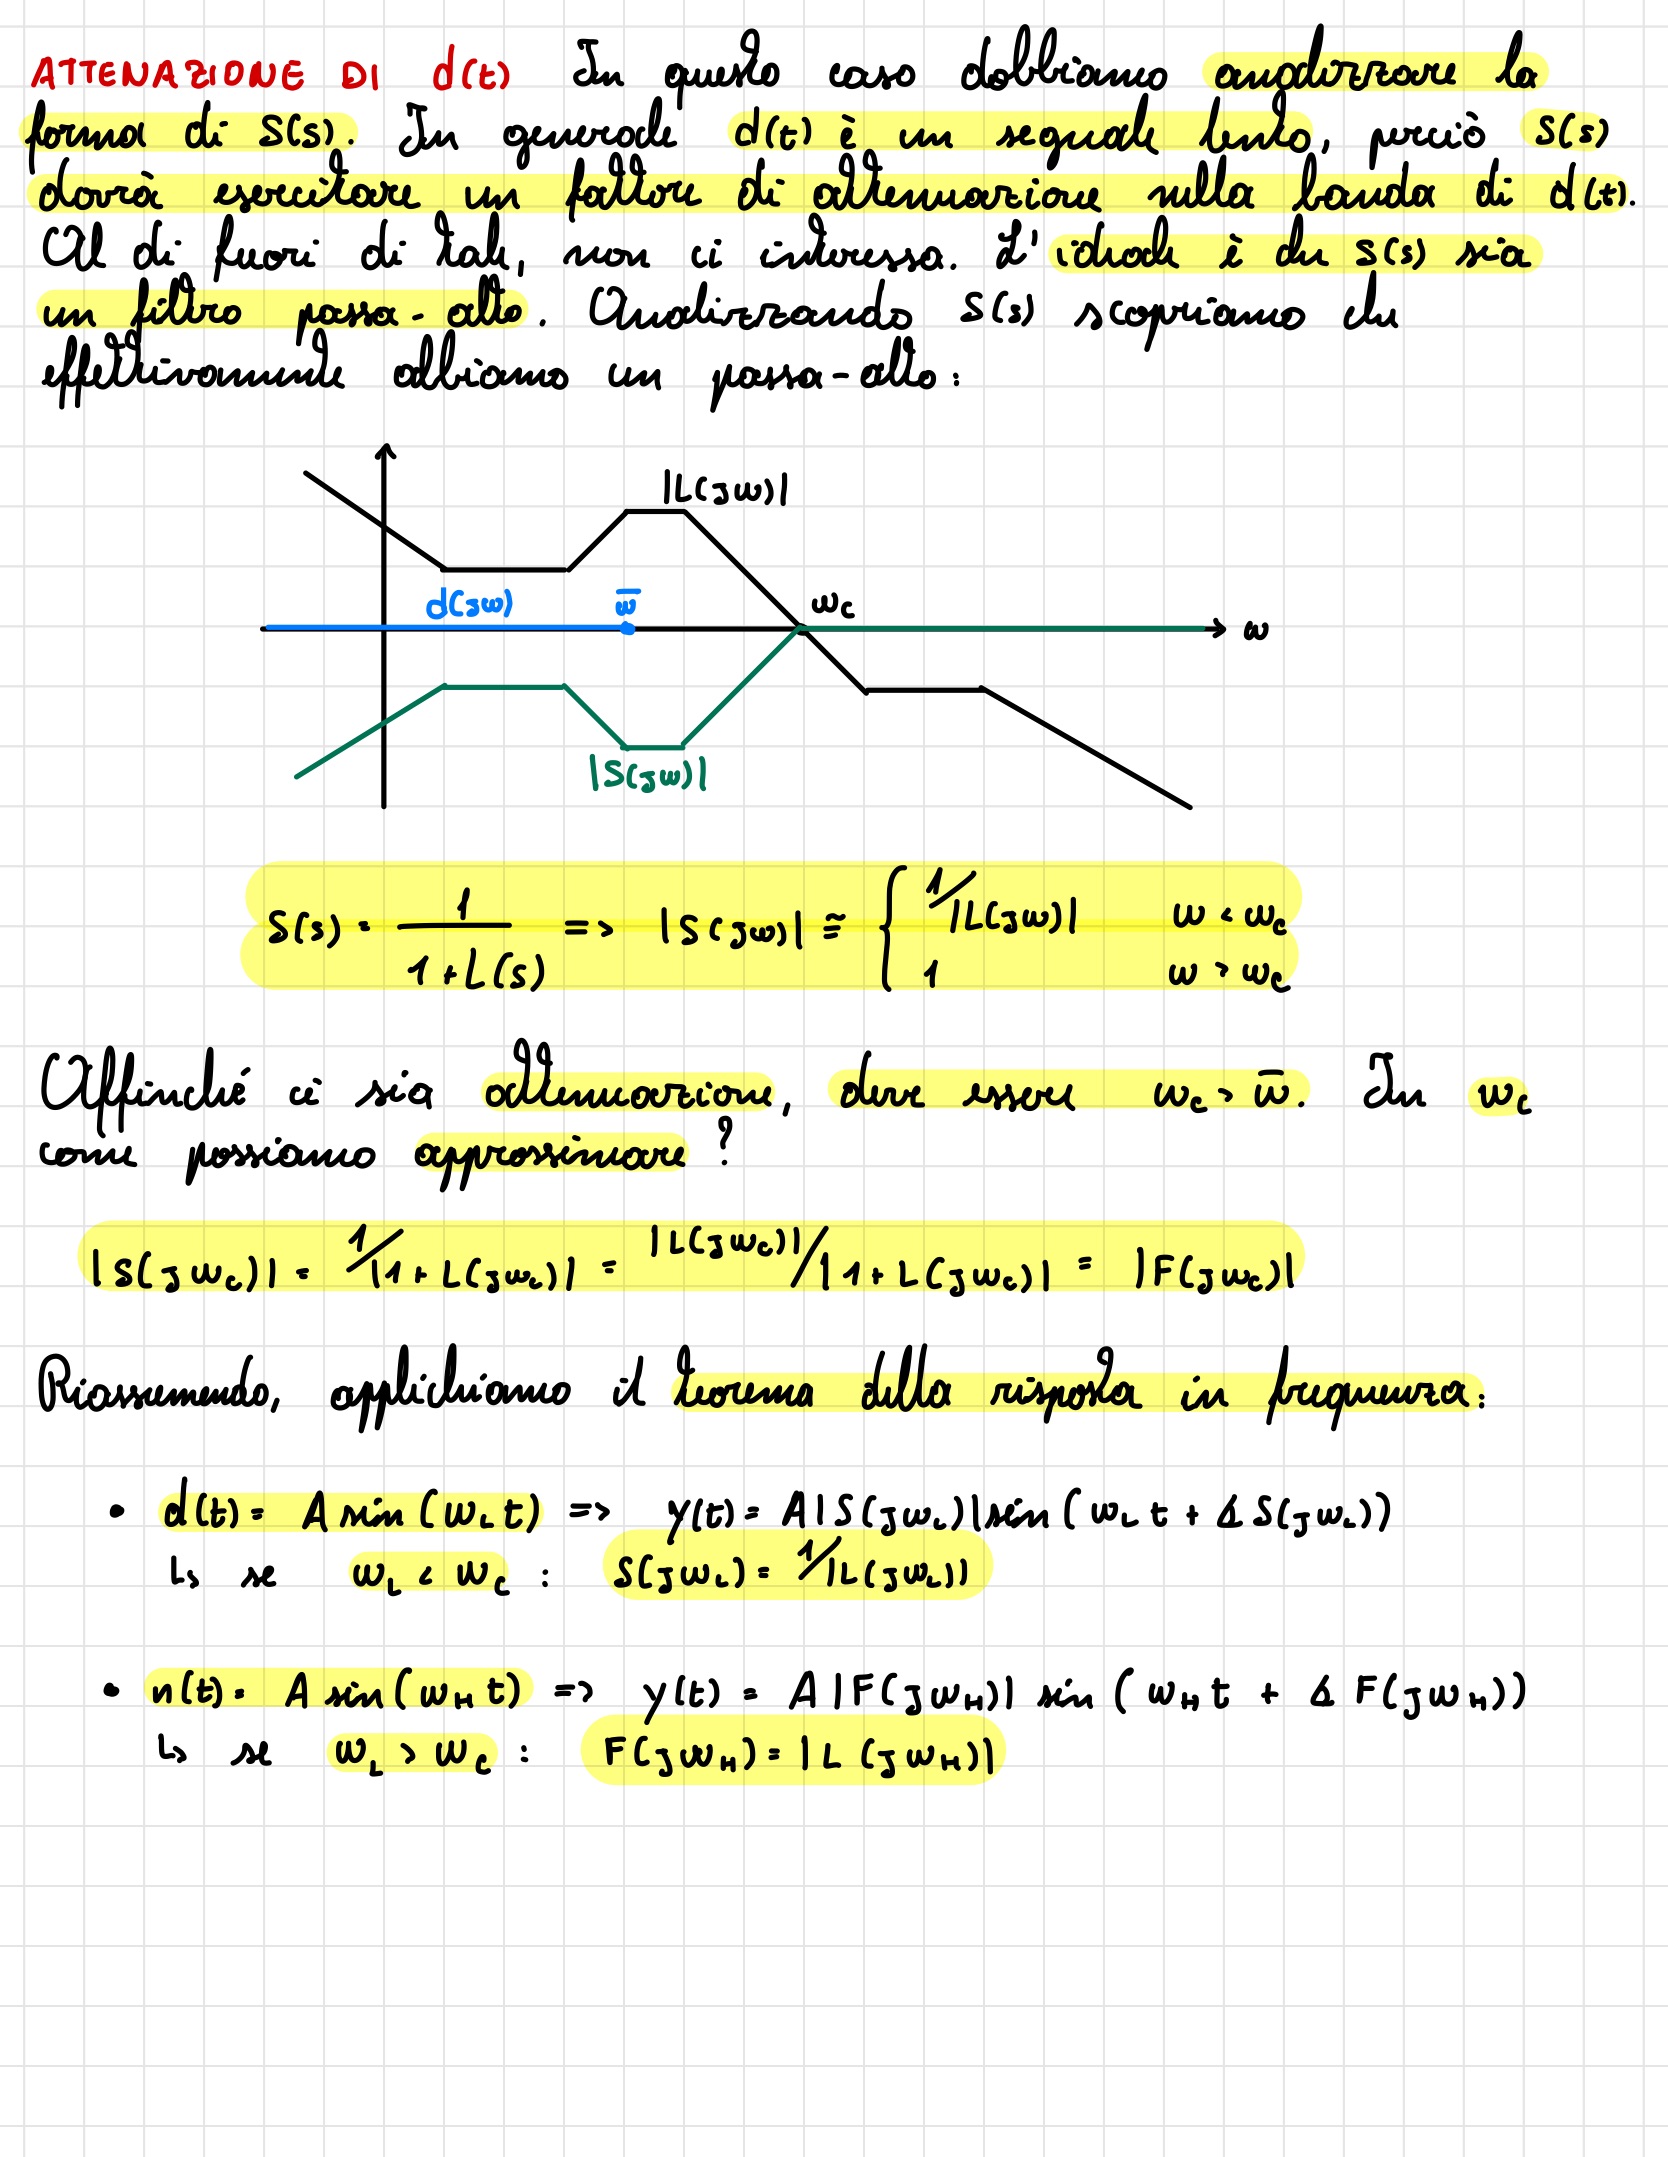 ATTENAZIONE DI d(t) In questo caso dobbiamo analizzare la
forma di S(s). In generale d(t) è un segnale lento, perciò S(s)
dovrà esercitare un fattore di attenuazione nella banda di d(t).
Al di fuori di tale, non ci interessa. L'ideale è che S(s) sia
un filtro passa-alto. Analizzando S(s) scopriamo che
effettivamente abbiamo un passa-alto:
|L(jω)|
d(jω) ω̅ ωc
ω
|S(jω)|
S(s) = 1/(1+L(s)) => |S(jω)| ≅ { 1/|L(jω)| ω < ωc
1 ω > ωc
Affinché ci sia attenuazione, deve essere ωc > ω̅. In ωc
come possiamo approssimare?
|S(jωc)| = 1/|1+L(jωc)| = |L(jωc)|/|1+L(jωc)| = |F(jωc)|
Riassumendo, applichiamo il teorema della risposta in frequenza:
• d(t) = A sin(ωL t) => y(t) = A|S(jωL)|sin(ωL t + ∡ S(jωL))
↳ se ωL < ωc : S(jωL) = 1/|L(jωL)|
• n(t) = A sin(ωH t) => y(t) = A|F(jωH)| sin(ωH t + ∡ F(jωH))
↳ se ωL > ωc : F(jωH) = |L(jωH)|